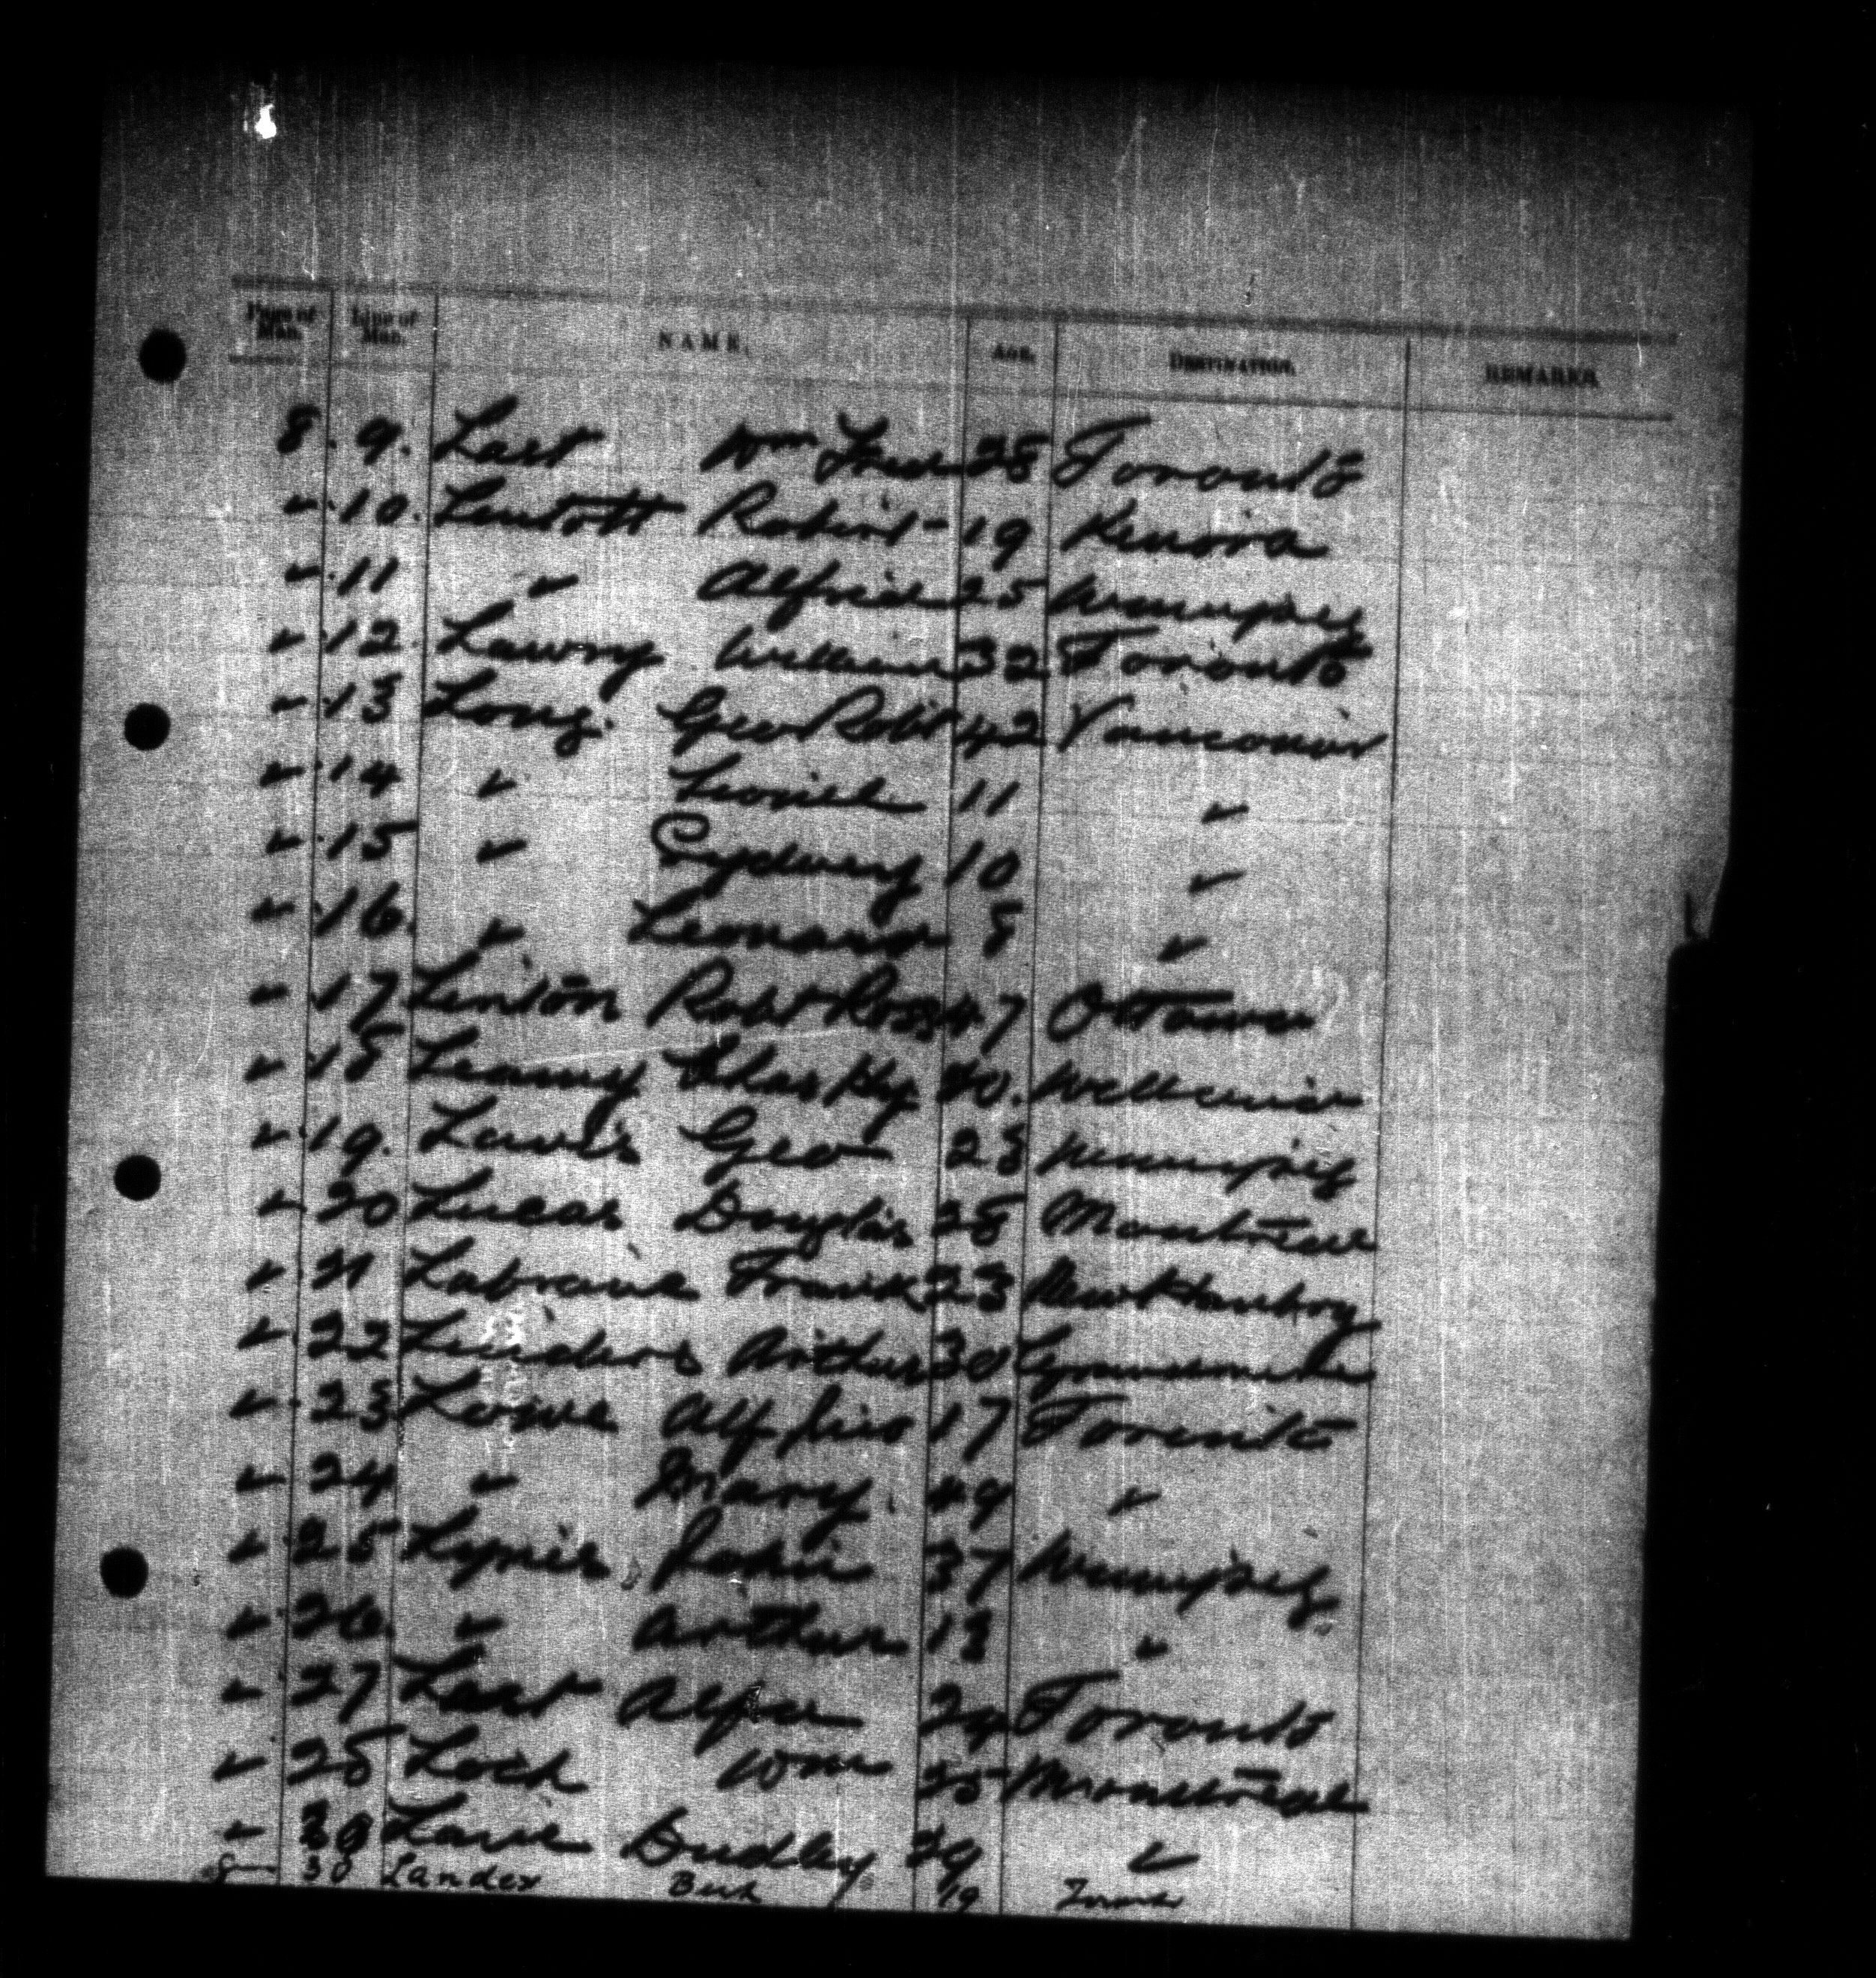 Page of Man. Line of Man. NAME. Age. Destination. REMARKS
8. 9. Last Wm Fred 28 Toronto
" 10. Lentott Robert 19 Kenora
" 11 " Alfred 25 Winnipeg
" 12 Lawry William 32 Toronto
" 13 Long. Geo Robt 42 Vancouver
" 14 " Lionel 11 "
" 15 " Sydney 10 "
" 16. " Leonard 8 "
" 17 Linton Robt Ross 47 Ottawa
" 18 Leamy Chas Hy 20.
" 19. Lewis Geo 28 Winnipeg
" 20 Lucas Douglas 28 Montreal
" 21 Frank 23 New Hamburg
" 22 Arthur 30
" 23 Lowe Alf Jno 17 Toronto
" 24 " Mary. 49 "
" 25 John 37 Winnipeg
" 26. " Arthur 13 "
" 27 Last Alfred 29 Toronto
" 28 Lock Wm 25 Montreal
" Lane Dudley 29 "
8 30 Lander Bert 19